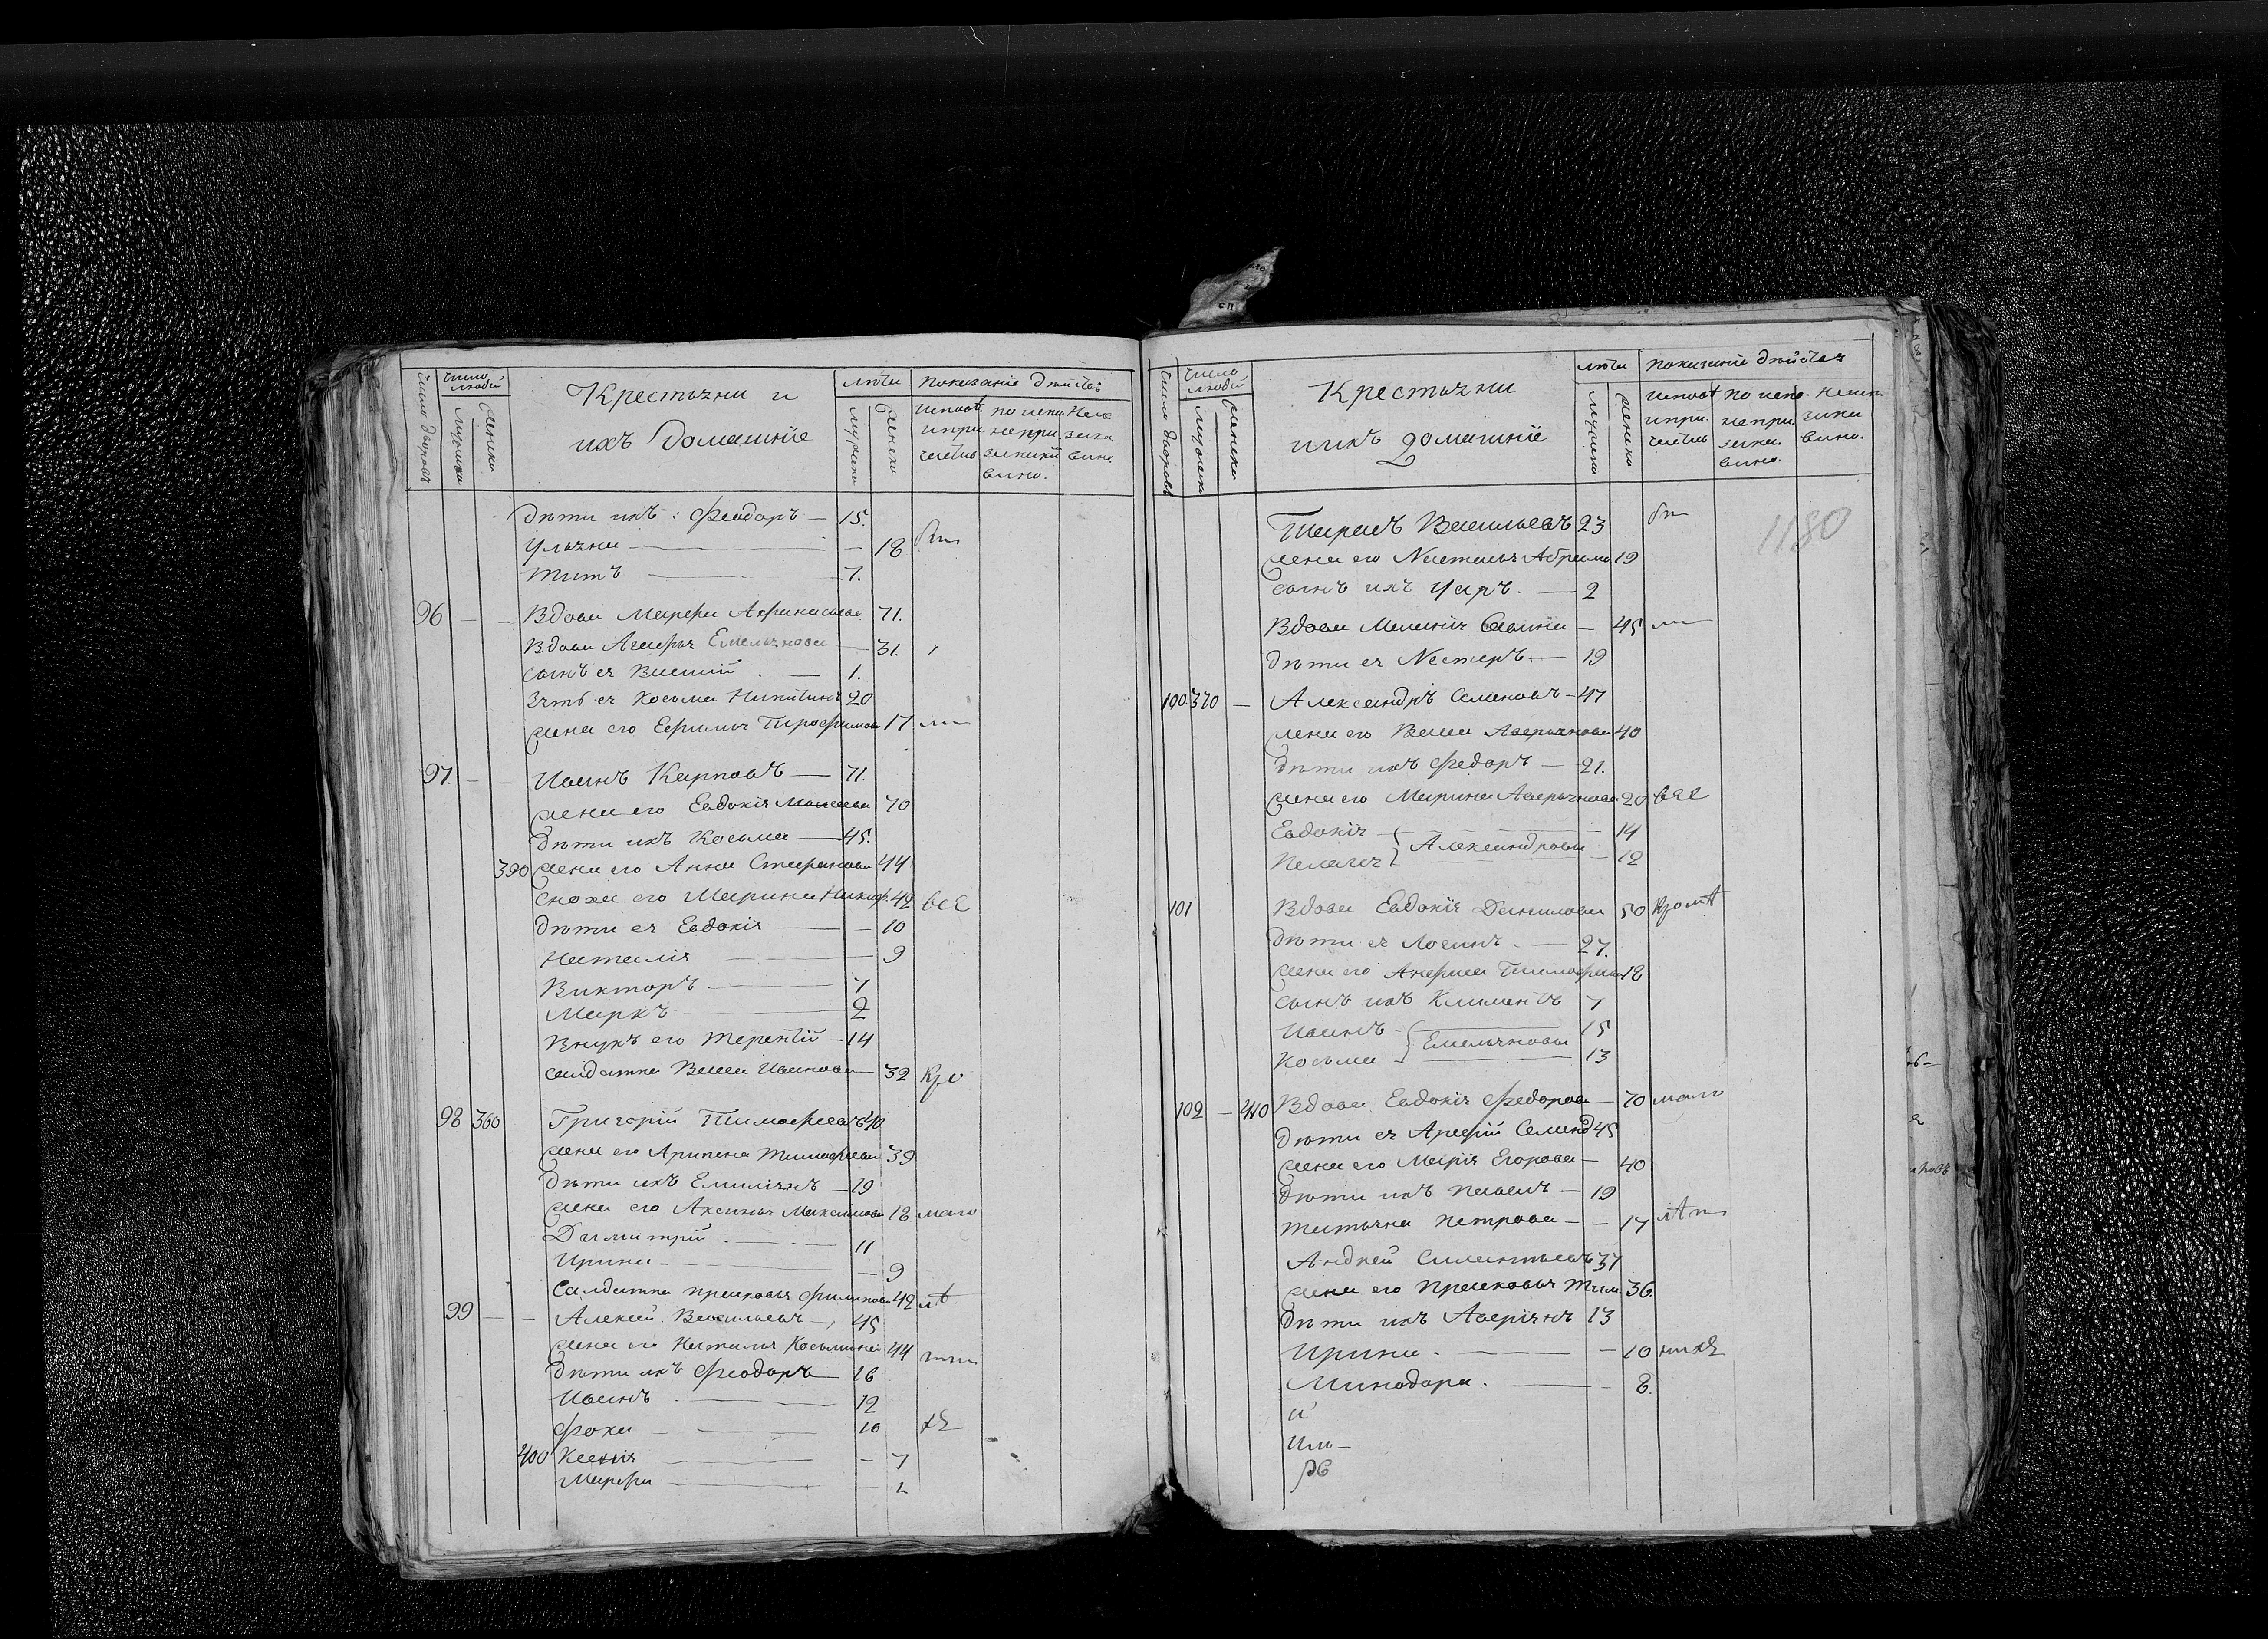 число дворовъ
число людей
мужска
женска
Крестьяни и
ихъ домашніе
лѣта
мужска
женска
показаніе дѣйства
Дѣти ихъ: Феодоръ — 15.
Ульяна — — 18
Титъ — 7.
96 — — Вдова Марфа Афанасьева 71.
Вдова Агафья Емельянова — 31.
сынъ ея Васиlій — 1.
зять ея Косьма Никитинъ 20
жена его Ефимья Трофимова 17
97. — — Иванъ Карповъ — 71.
жена его Евдокія Моисеева 70
Дѣти ихъ Косьма — 45.
390 жена его Анна Стефанова 44
сноха его Марина Никиф. 42 все
Дѣти ея Евдокія — — 10
Наталія — — 9
Викторъ — 7
Маркъ — 2
Внукъ его Терентій — 14
салдатка Васса Иванова — 32 кро
98 360 Григорій Тимофеевъ 40
жена его Арипена Тимофеева 39
Дѣти ихъ Емиліянъ — 19
жена его Аксинья Максимова 18 мало
Дъимитрій — 11
Ирина — — 9
Салдатка прасковья Филипова 42
99 — — Алексей Васильевъ — 45
жена его Наталья Косьмина 44
Дѣти ихъ Феодоръ — 16
Иванъ — 12
Фока — 10
400 Ксенія — — 7
Марфа — — 2
число дворовъ
число людей
мужска
женска
Крестьяни
и ихъ домашніе
лѣта
мужска
женска
показаніе дѣйства
1180
Тарасъ Васильевъ 23
жена его Настасья Абрамо. 19
сынъ ихъ Уаръ. — 2
Вдова Меланія Савина — 45
дѣти ея Нестеръ. — 19
100. 370 — Александръ Семеновъ — 47
жена его Васса Аверьянова 40
дѣти ихъ Федоръ — 21.
жена его Марина Аверьянова 20 все
Евдокія — 14
Александровы
Пелагея — 12
101 Вдова Евдокія Данилова 50
дѣти ея Логинъ — 27.
жена его Анфиса Тимофеева 18
сынъ ихъ Климентъ 7
Иванъ — 15
Емельяновы
Косьма — 13
102 — 410 Вдова Евдокія Федорова — 70 мало
Дѣти ея Арефій Семено 45
жена его Марія Егорова — 40
дѣти ихъ Павелъ — 19
Татьяна Петрова — — 17
Андрей Силантьевъ 37
жена его Прасковья Тим. 36.
дѣти ихъ Аверіянъ 13
Ирина. — — 10
Минодора. — — 8.